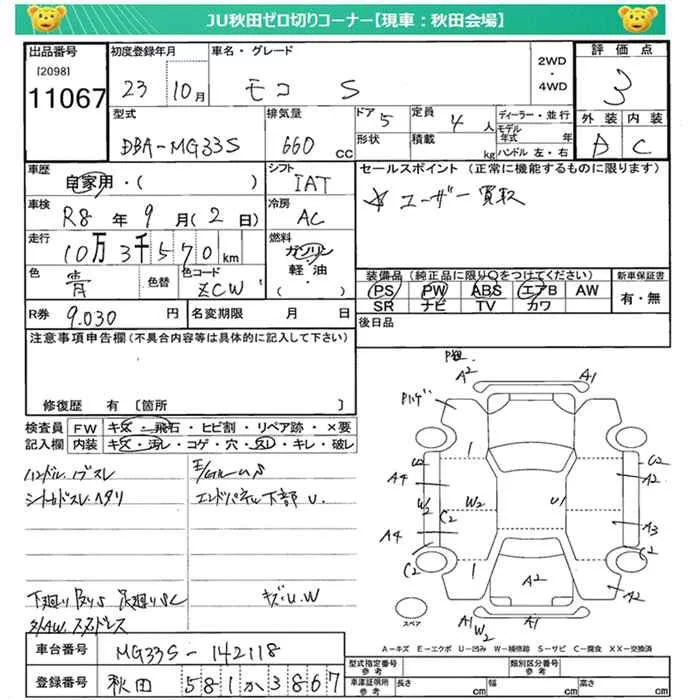 JU秋田ゼロ切りコーナー【現車：秋田会場】
出品番号 初度登録年月 車名・グレード 2WD ・ 4WD 評価点
[2098]
11067 23 10月 モコ S 3
型式 排気量 ドア 定員 ディーラー・並行 外装 内装
DBA-MG33S 660 cc 5 4人 モデル年式 年 A C
形状 積載 kg ハンドル 左・右
車歴 シフト セールスポイント (正常に機能するものに限ります)
自家用・( ) IAT ☆ユーザー買取
車検 冷房
R8年9月(2日) AC
走行 燃料
10万3千570km ガソリン・軽油・( )
色 色替 色コード 装備品(純正品に限り○をつけてください) 新車保証書
青 ZCW PS PW ABS エアB AW 有・無
SR ナビ TV カワ
R券 9.030円 名変期限 月 日 後日品
注意事項申告欄(不具合内容等は具体的に記入して下さい)
修復歴 有 〔箇所 〕
検査員記入欄 FW キズ・飛石・ヒビ割・リペア跡・×要
内装 キズ・汚レ・コゲ・穴・スレ・キレ・破レ
ハンドル
シート
エンドパネル下部 U.
下廻り
キズ.U.W
P垣 A2 A1
Pハゲ
A4 W2 C2 W2 U1 A2 C2
A4 C2 A3 C2
A2 A2
A1 W2 A1
スペア
A-キズ E-エクボ U-凹み W-補修跡 S-サビ C-腐食 XX-交換済
車台番号 MG33S-142118 型式指定番号 参考 類別区分番号 参考
登録番号 秋田 581か3867 車庫証明所 参考 長さ cm 幅 cm 高さ cm